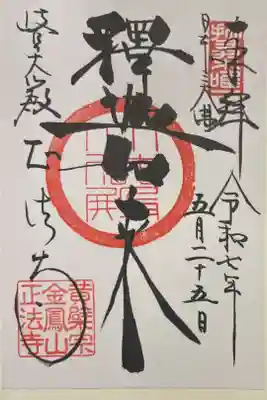 奉拝
日本三大佛
令和七年
五月二十五日
釋迦如来
岐阜大仏殿
正法寺
黄檗宗
金鳳山
正法寺